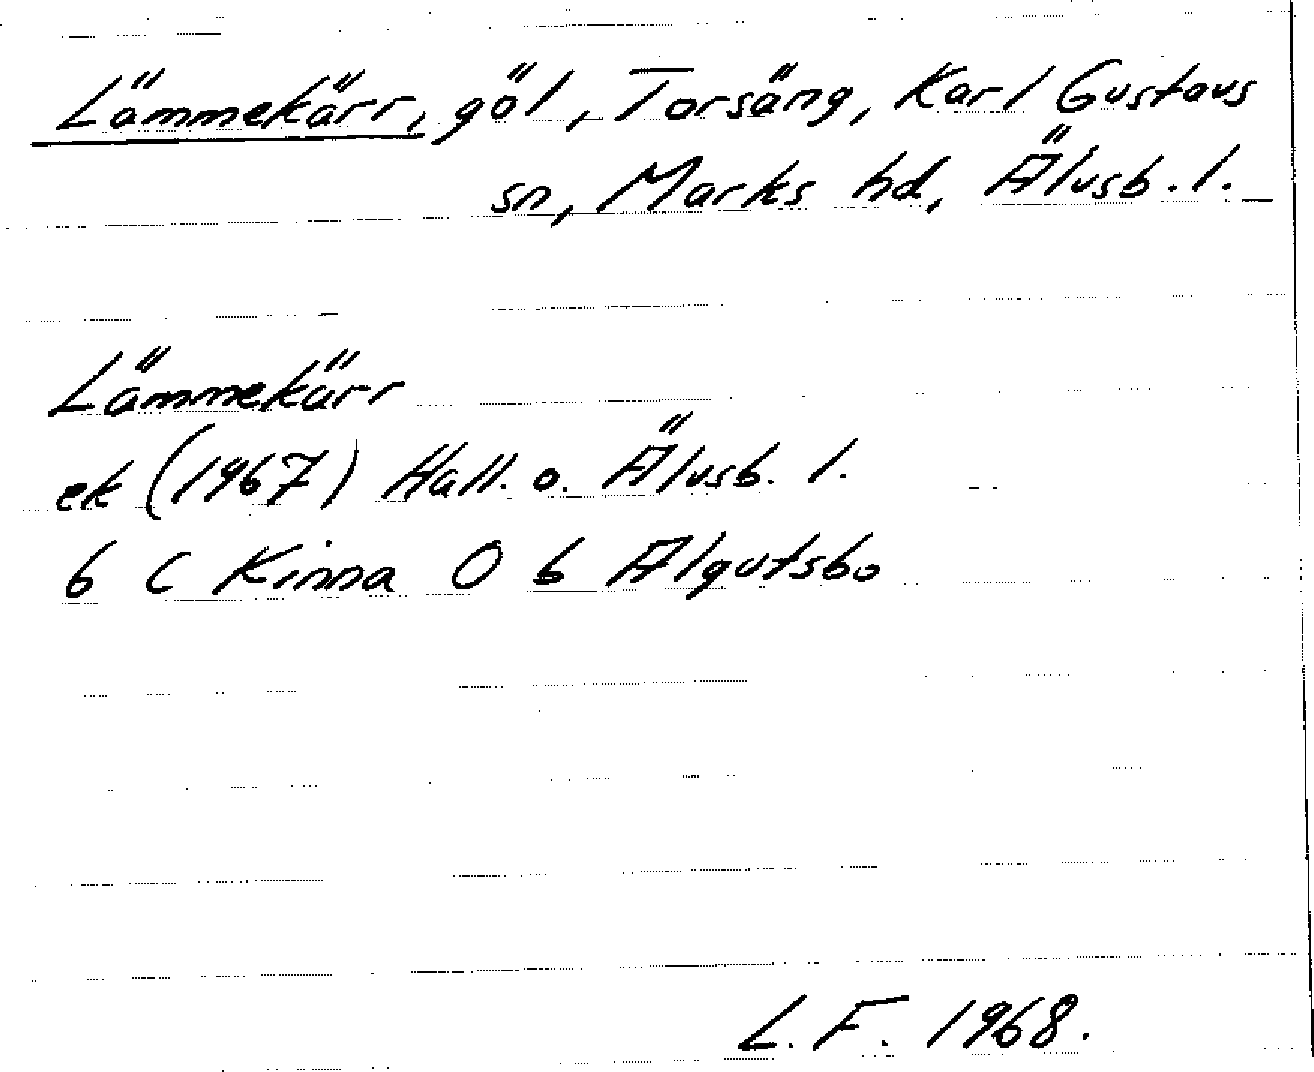 Lämmekärr, göl, Torsäng, Karl Gustavs
sn, Marks hd, Älvsb. l.
Lämmekärr
ek (1967) Hall. o. Älvsb. l.
6 C Kinna O b Älgutsbo
L. F. 1968.